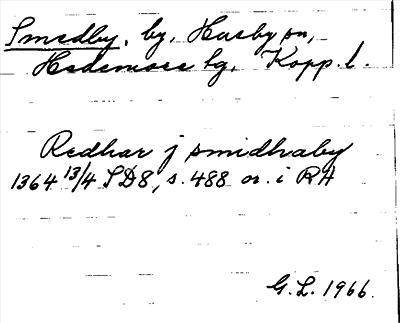 Smedby, by, Husby sn,
Hedemora tg, Kopp. l.
Redhar j smidhaby
1364 13/4 SD8, s. 488 or. i RA
G.L. 1966.